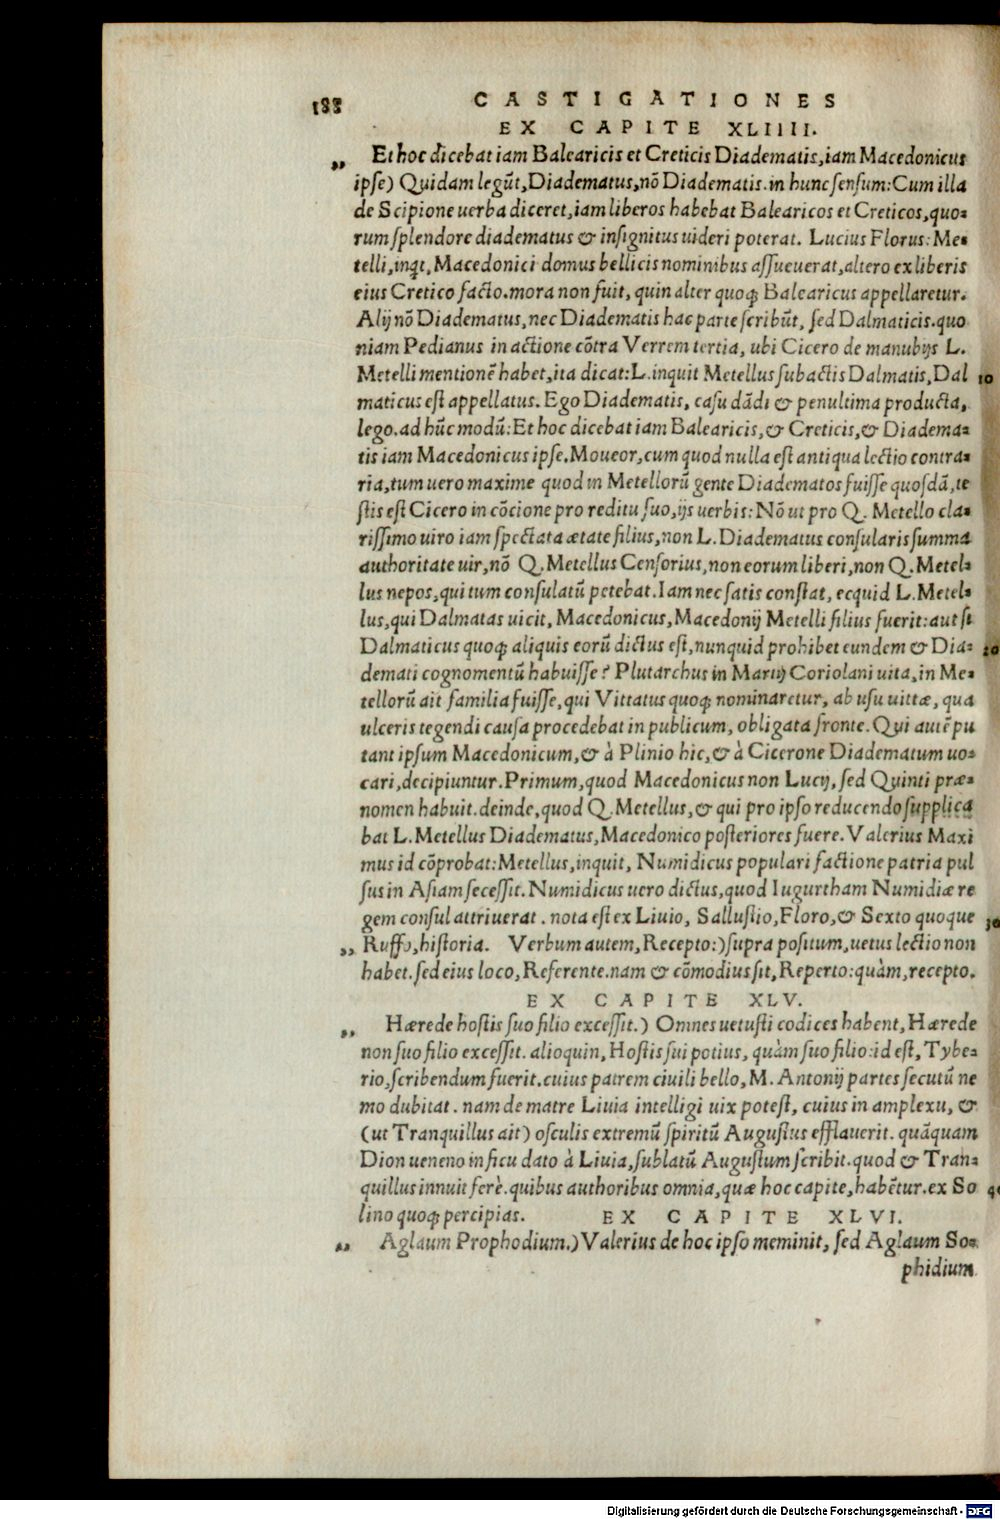 188 CASTIGATIONES
EX CAPITE XLIIII.
„ Et hoc dicebat iam Balearicis et Creticis Diadematis, iam Macedonicus
ipse) Quidam legūt, Diadematus, nō Diadematis. in hunc sensum: Cum illa
de Scipione uerba diceret, iam liberos habebat Balearicos et Creticos, quo-
rum splendore diadematus & insignitus uideri poterat. Lucius Florus: Me-
telli, inqt, Macedonici domus bellicis nominibus assueuerat, altero ex liberis
eius Cretico facto. mora non fuit, quin alter quoq; Balearicus appellaretur.
Alij nō Diadematus, nec Diadematis hac parte scribūt, sed Dalmaticis. quo
niam Pedianus in actione cōtra Verrem tertia, ubi Cicero de manubijs L.
Metelli mentionē habet, ita dicat: L. inquit Metellus subactis Dalmatis, Dal 10
maticus est appellatus. Ego Diadematis, casu dādi & penultima producta,
lego. ad hūc modū: Et hoc dicebat iam Balearicis, & Creticis, & Diadema-
tis iam Macedonicus ipse. Moueor, cum quod nulla est antiqua lectio contra-
ria, tum uero maxime quod in Metellorū gente Diadematos fuisse quosdā, te
stis est Cicero in cōcione pro reditu suo, ijs uerbis: Nō ut pro Q. Metello cla-
rissimo uiro iam spectata ætate filius, non L. Diadematus consularis summa
authoritate uir, nō Q. Metellus Censorius, non eorum liberi, non Q. Metel-
lus nepos, qui tum consulatū petebat. Iam nec satis constat, ecquid L. Metel-
lus, qui Dalmatas uicit, Macedonicus, Macedonij Metelli filius fuerit: aut si
Dalmaticus quoq; aliquis eorū dictus est, nunquid prohibet eundem & Dia- 20
demati cognomentū habuisse? Plutarchus in Martij Coriolani uita, in Me-
tellorū ait familia fuisse, qui Vittatus quoq; nominaretur, ab usu uittæ, qua
ulceris tegendi causa procedebat in publicum, obligata fronte. Qui autē pu
tant ipsum Macedonicum, & à Plinio hic, & à Cicerone Diadematum uo-
cari, decipiuntur. Primum, quod Macedonicus non Lucij, sed Quinti præ-
nomen habuit. deinde, quod Q. Metellus, & qui pro ipso reducendo supplica
bat L. Metellus Diadematus, Macedonico posteriores fuere. Valerius Maxi
mus id cōprobat: Metellus, inquit, Numidicus populari factione patria pul
sus in Asiam secessit. Numidicus uero dictus, quod Iugurtham Numidiæ re
gem consul attriuerat. nota est ex Liuio, Sallustio, Floro, & Sexto quoque 30
„ Ruffo, historia. Verbum autem, Recepto:) supra positum, uetus lectio non
habet. sed eius loco, Referente. nam & cōmodius sit, Reperto: quàm, recepto.
EX CAPITE XLV.
„ Hærede hostis suo filio excessit.) Omnes uetusti codices habent, Hærede
non suo filio excessit. alioquin, Hostis sui potius, quàm suo filio: id est, Tybe-
rio, scribendum fuerit. cuius patrem ciuili bello, M. Antonij partes secutū ne
mo dubitat. nam de matre Liuia intelligi uix potest, cuius in amplexu, &
(ut Tranquillus ait) osculis extremū spiritū Augustus efflauerit. quāquam
Dion ueneno in ficu dato à Liuia, sublatū Augustum scribit. quod & Tran-
quillus innuit ferè. quibus authoribus omnia, quæ hoc capite, habētur. ex So 40
lino quoq; percipias. EX CAPITE XLVI.
„ Aglaum Prophodium.) Valerius de hoc ipso meminit, sed Aglaum So-
phidium
Digitalisierung gefördert durch die Deutsche Forschungsgemeinschaft - DFG